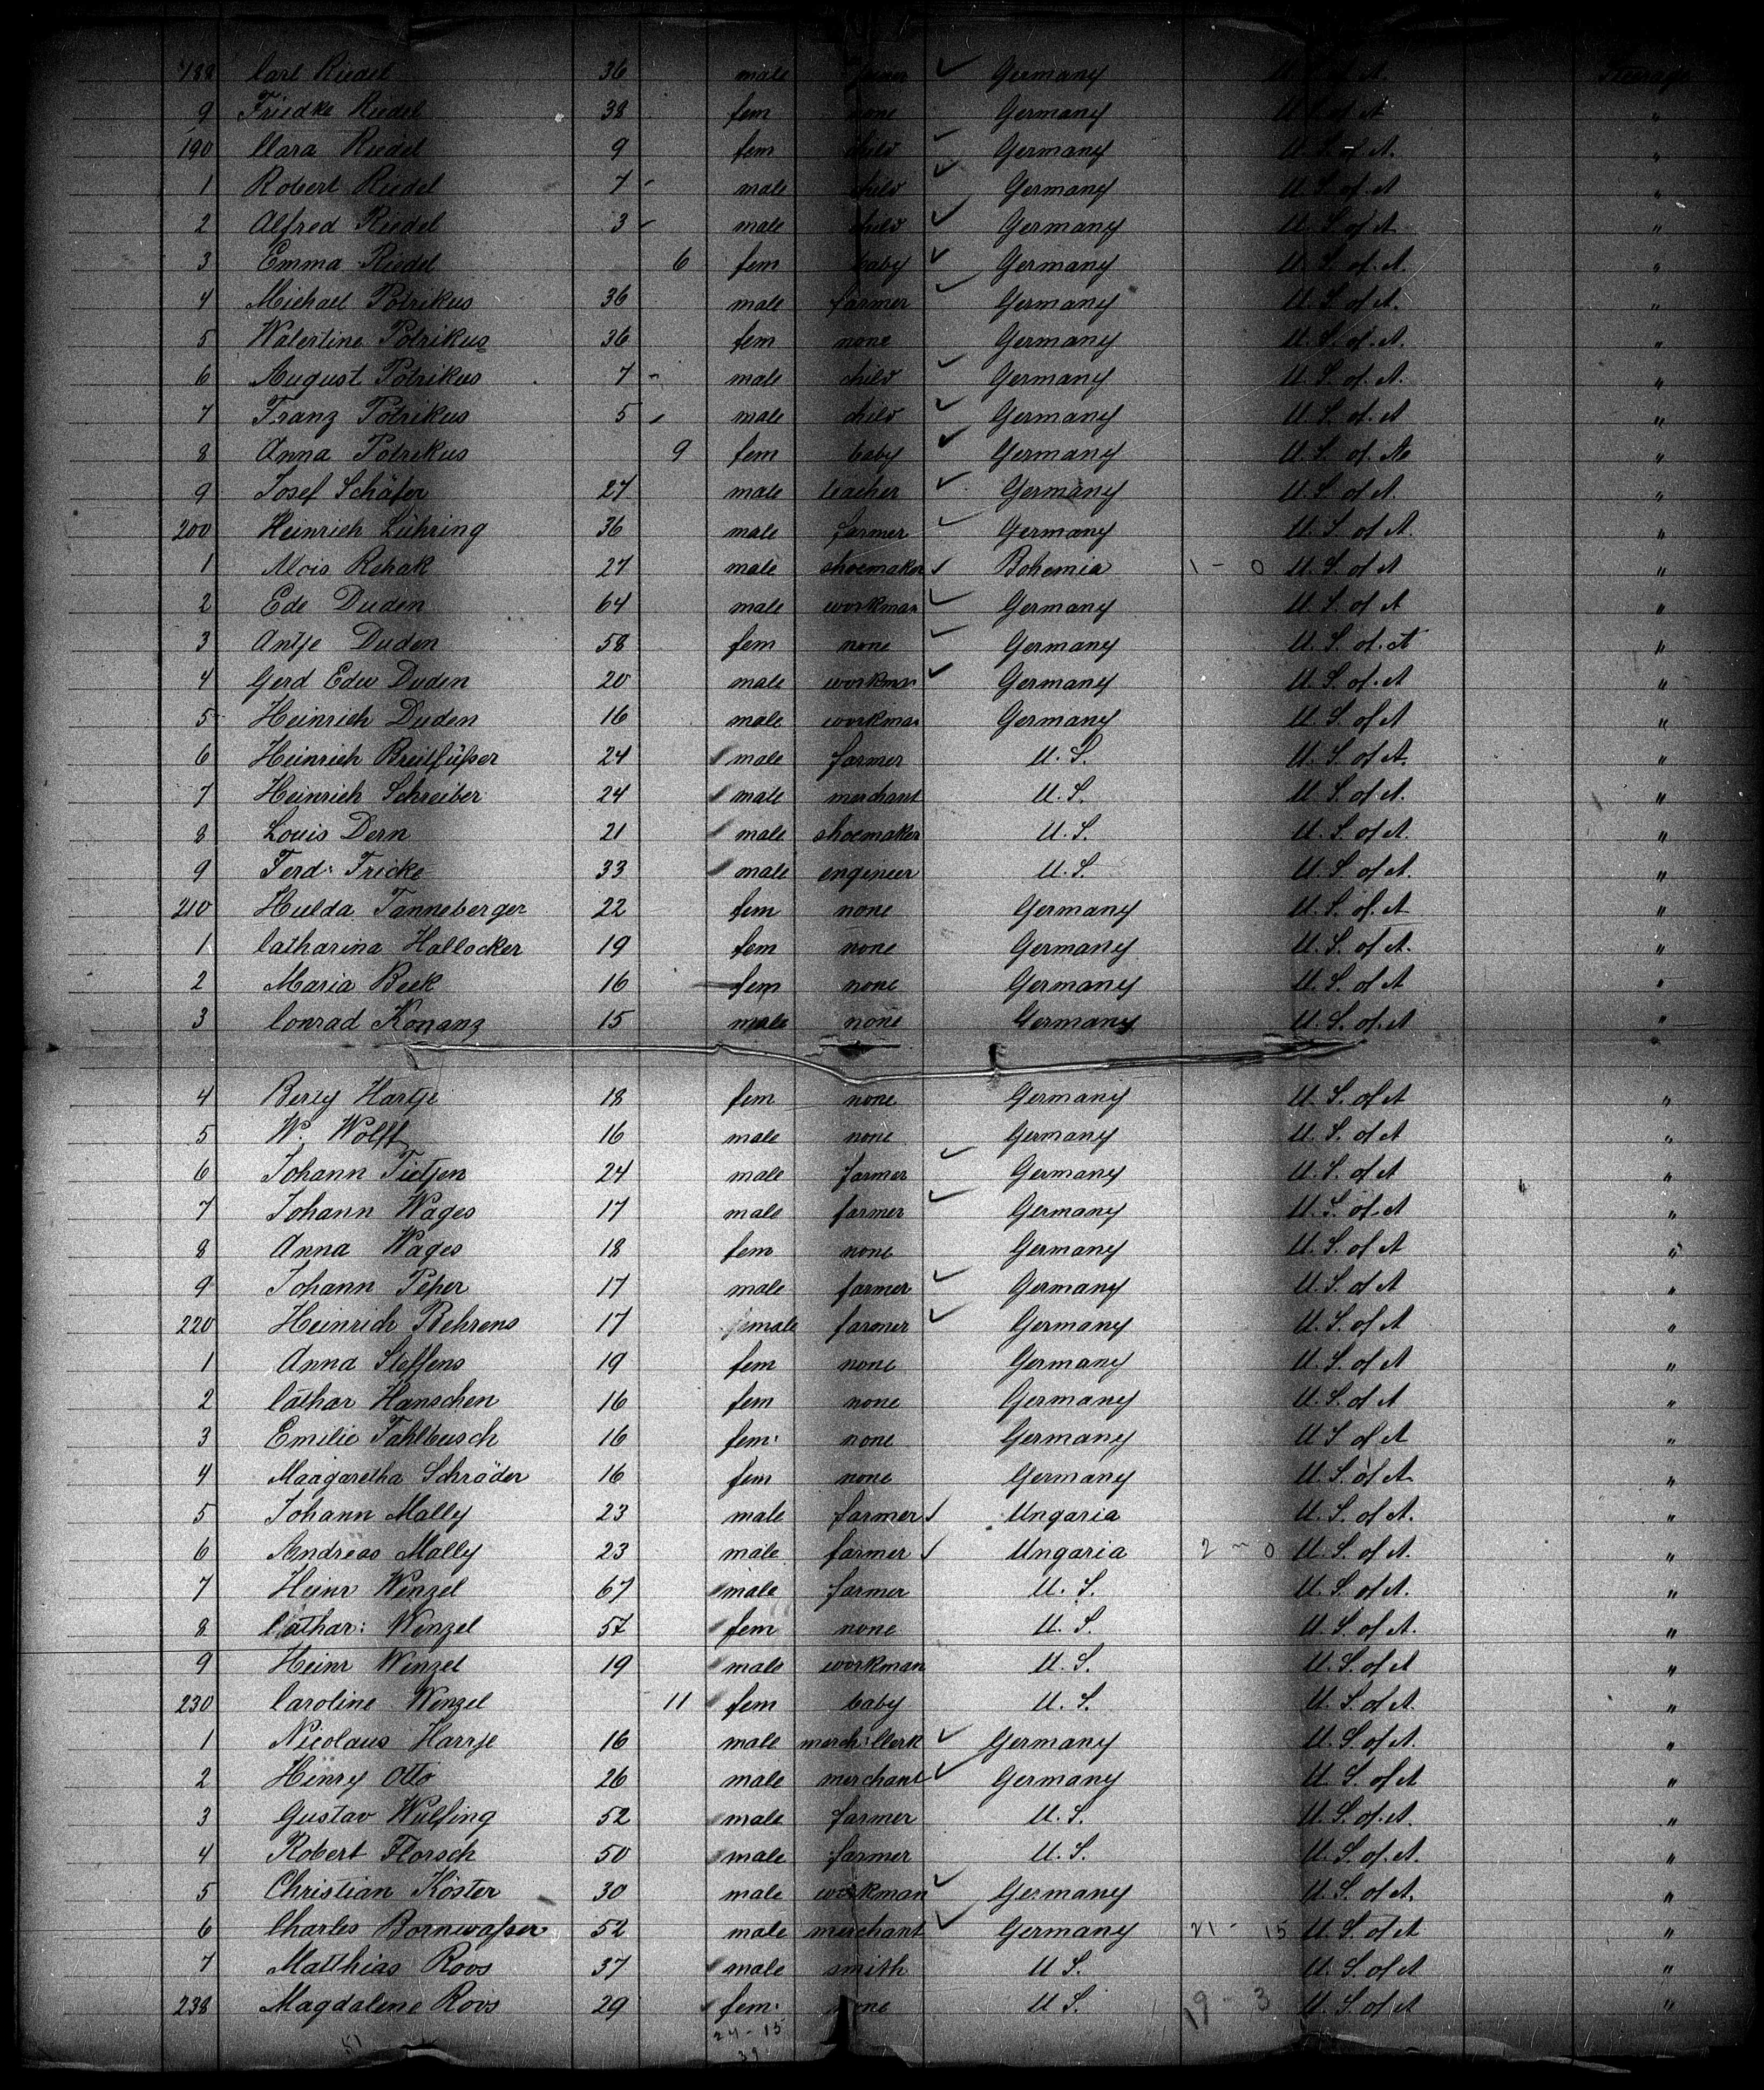 188 Carl Riedel 36 male Germany U. S. of A. Steerage
9 Friedke Riedel 38 fem none Germany U. S. of A "
190 Clara Riedel 9 fem child Germany U. S. of A. "
1 Robert Riedel 7 male child Germany U. S. of A "
2 Alfred Riedel 3 male child Germany U. S. of A "
3 Emma Riedel 6 fem baby Germany U. S. of A. "
4 Michael Potrikus 36 male farmer Germany U. S. of A. "
5 Walertine Potrikus 36 fem none Germany U. S. of A. "
6 August Potrikus 7 male child Germany U. S. of A. "
7 Franz Potrikus 5 male child Germany U. S. of A "
8 Anna Potrikus 9 fem baby Germany U. S. of A "
9 Josef Schäfer 27 male teacher Germany U. S. of A. "
200 Heinrich Lühring 36 male farmer Germany U. S. of A. "
1 Alois Rehak 27 male shoemaker Bohemia 1 - 0 U. S. of A "
2 Ede Duden 64 male workman Germany U. S. of A "
3 Antje Duden 58 fem none Germany U. S. of A "
4 Gerd Edw Duden 20 male workman Germany U. S. of A "
5 Heinrich Duden 16 male workman Germany U. S. of A "
6 Heinrich Breitfüßer 24 male farmer U. S. U. S. of A. "
7 Heinrich Schreiber 24 male merchant U. S. U. S. of A. "
8 Louis Dern 21 male shoemaker U. S. U. S. of A. "
9 Ferd: Fricke 33 male engineer U. S. U. S. of A. "
210 Hulda Tanneberger 22 fem none Germany U. S. of A "
1 Catharina Hallacker 19 fem none Germany U. S. of A. "
2 Maria Beck 16 fem none Germany U. S. of A "
3 Conrad Konanz 15 male none Germany U. S. of A "
4 Hartje 18 fem none Germany U. S. of A "
5 W. Wolff 16 male none Germany U. S. of A "
6 Johann Tietjen 24 male farmer Germany U. S. of A "
7 Johann Wages 17 male farmer Germany U. S. of A "
8 Anna Wages 18 fem none Germany U. S. of A "
9 Johann Peper 17 male farmer Germany U. S. of A "
220 Heinrich Behrens 17 male farmer Germany U. S. of A "
1 Anna Steffens 19 fem none Germany U. S. of A "
2 Cathar Hanschen 16 fem none Germany U. S. of A "
3 Emilie Fahlbusch 16 fem. none Germany U S of A "
4 Margaretha Schröder 16 fem none Germany U. S. of A. "
5 Johann Mally 23 male farmer Ungaria U. S. of A. "
6 Andreas Mally 23 male farmer Ungaria 2 - 0 U. S. of A. "
7 Heinr Wenzel 67 male farmer U. S. U. S. of A. "
8 Cathar: Wenzel 57 fem none U. S. U. S. of A. "
9 Heinr Wenzel 19 male workman U. S. U. S. of A "
230 Caroline Wenzel 11 fem baby U. S. U. S. of A. "
1 Nicolaus Harrje 16 male merch: Clerk Germany U. S. of A. "
2 Henry Otto 26 male merchant Germany U. S. of A "
3 Gustav Wulfing 52 male farmer U. S. U. S. of A. "
4 Robert Florsch 50 male farmer U. S. U. S. of A. "
5 Christian Köster 30 male workman Germany U. S. of A. "
6 Charles Bornwaßer 52 male merchant Germany 21 - 15 U. S. of A "
7 Matthias Roos 37 male smith U S. U. S. of A "
238 Magdalene Roos 29 fem. none U S. 19 - 3 U. S. of A "
51 24 - 15
39